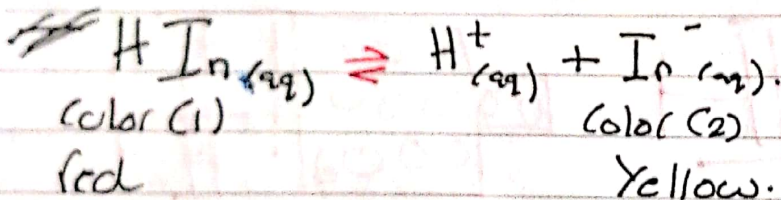 H In (aq) ⇌ H⁺ (aq) + In⁻ (aq).
Color (1) Color (2)
red Yellow.